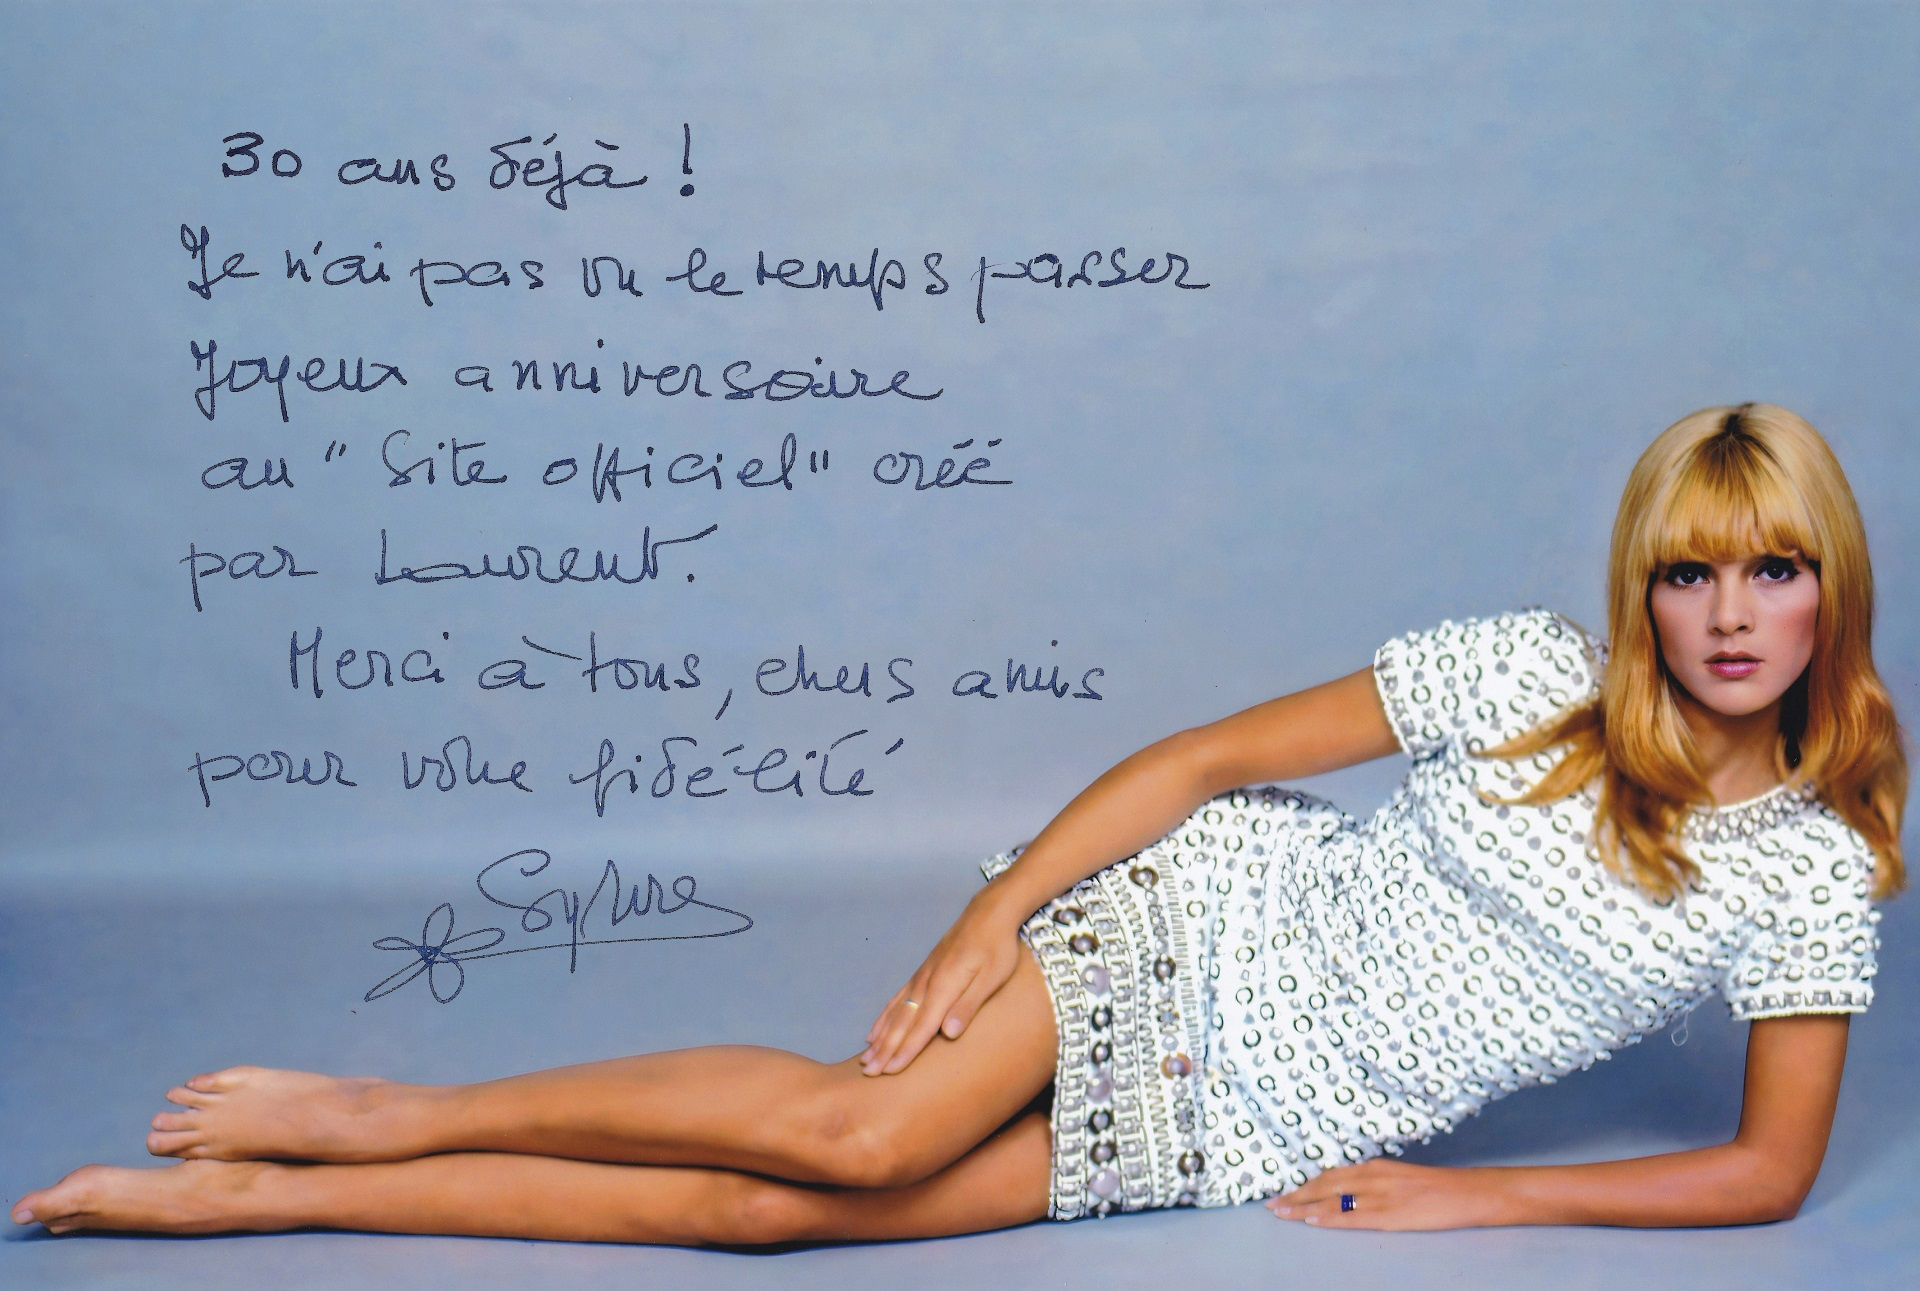 30 ans déjà !
Je n'ai pas vu le temps passer
Joyeux anniversaire
au "Site officiel" créé
par Laurent.
Merci à tous, chers amis
pour votre fidélité
Sylvie